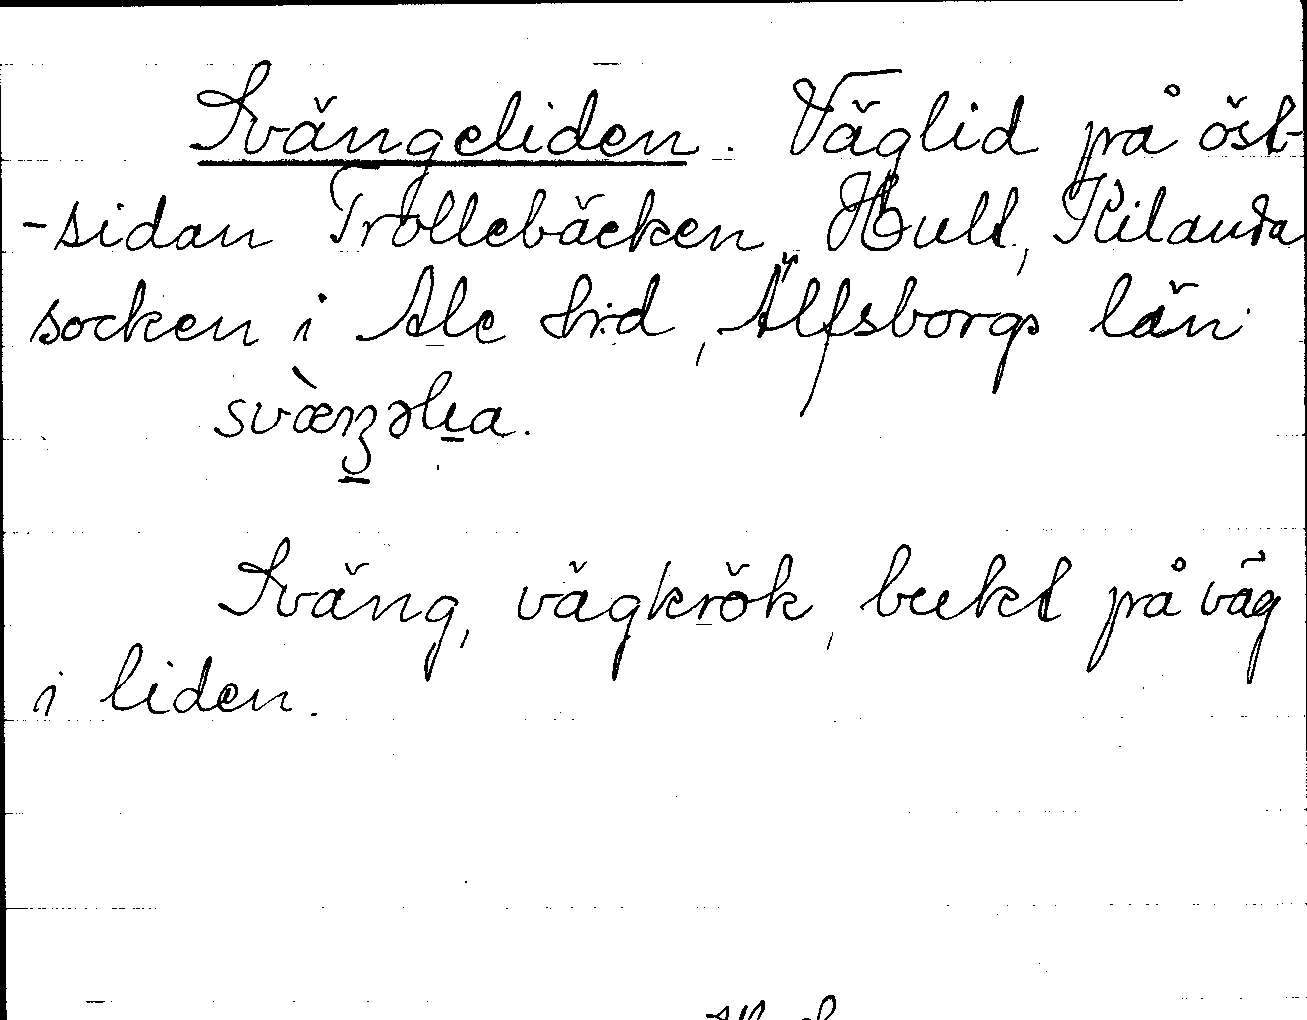 Svängeliden. Väglid på öst-
-sidan Trollebäcken, Hult, Kilanda
socken i Ale hrd, Älfsborgs län
svæ̀ŋəlia.
Sväng, vägkrök, bukt på väg
i liden.